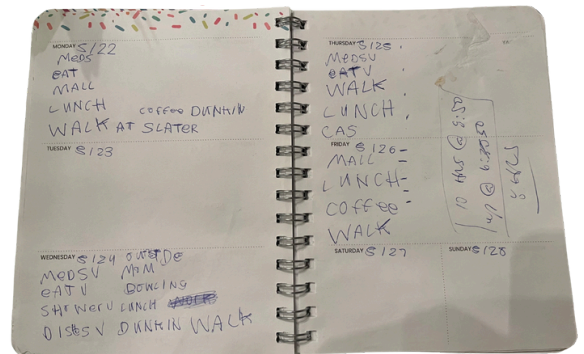 MONDAY 5/22
MEDS
EAT
MALL
LUNCH COFFEE DUNKIN
WALK AT SLATER
TUESDAY 5/23
WEDNESDAY 5/24
MEDSV MOM
EATV BOWLING
SHOWERV LUNCH
DUNKIN WALK
THURSDAY 5/25
MEDSV
EATV
WALK
LUNCH
CAS
FRIDAY 5/26
MALL
LUNCH
COFFEE
WALK
SATURDAY 5/27
SUNDAY 5/28